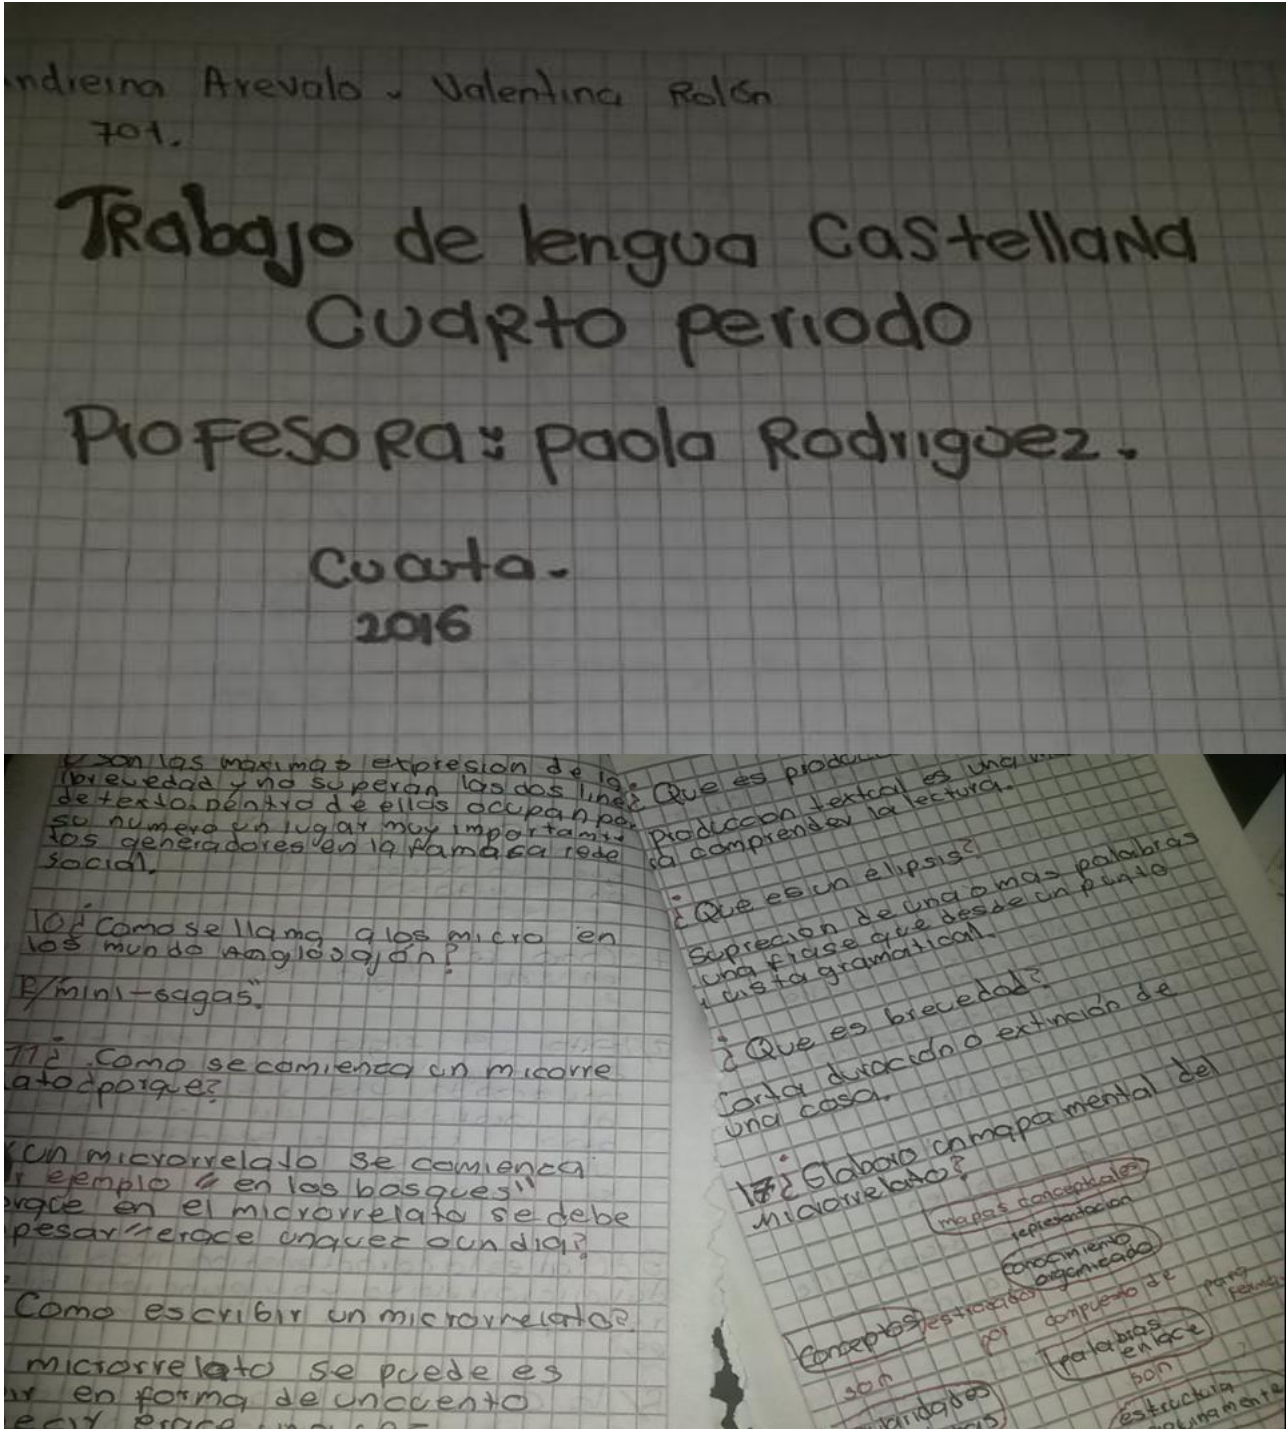 ndreina Arevalo. Valentina Rolón
701.
TRabajo de lengua CastellaNa
CuaRto periodo
ProfesoRa: paola Rodriguez.
Cuarta.
2016
son las maximas expresion de la
brevedad y no superan las dos line
de texto. Dentro de ellas ocupan por
su numero un lugar muy importante
los generadores en la famosa rede
social.
10¿ Como se llama a los micro en
los mundo Anglosajón?
R/mini-sagas".
11¿ Como se comienca un micorre
ato ¿porque?
un microrrelato se comienca
ejemplo "en los bosques"
en el microrrelato se debe
pesar "erace unaves o un dia?
Como escribir un microrrelato?
microrrelato se puede es
en forma de un cuento
¿ Que es
Producción textual es una
comprender la lectura.
¿ Que es un elipsis?
supreción de una o mas palabras
una frase que desde un punto
vista gramatical.
¿ Que es brecedad?
Corta duración o extinción de
una cosa.
17¿ Elaboro un mapa mental del
Microrrelato?
mapas conceptuales
representacion
conocimiento
organicado
conceptos
estructurado
por
compuesto de
para
palabras
enlace
son
son
estructura